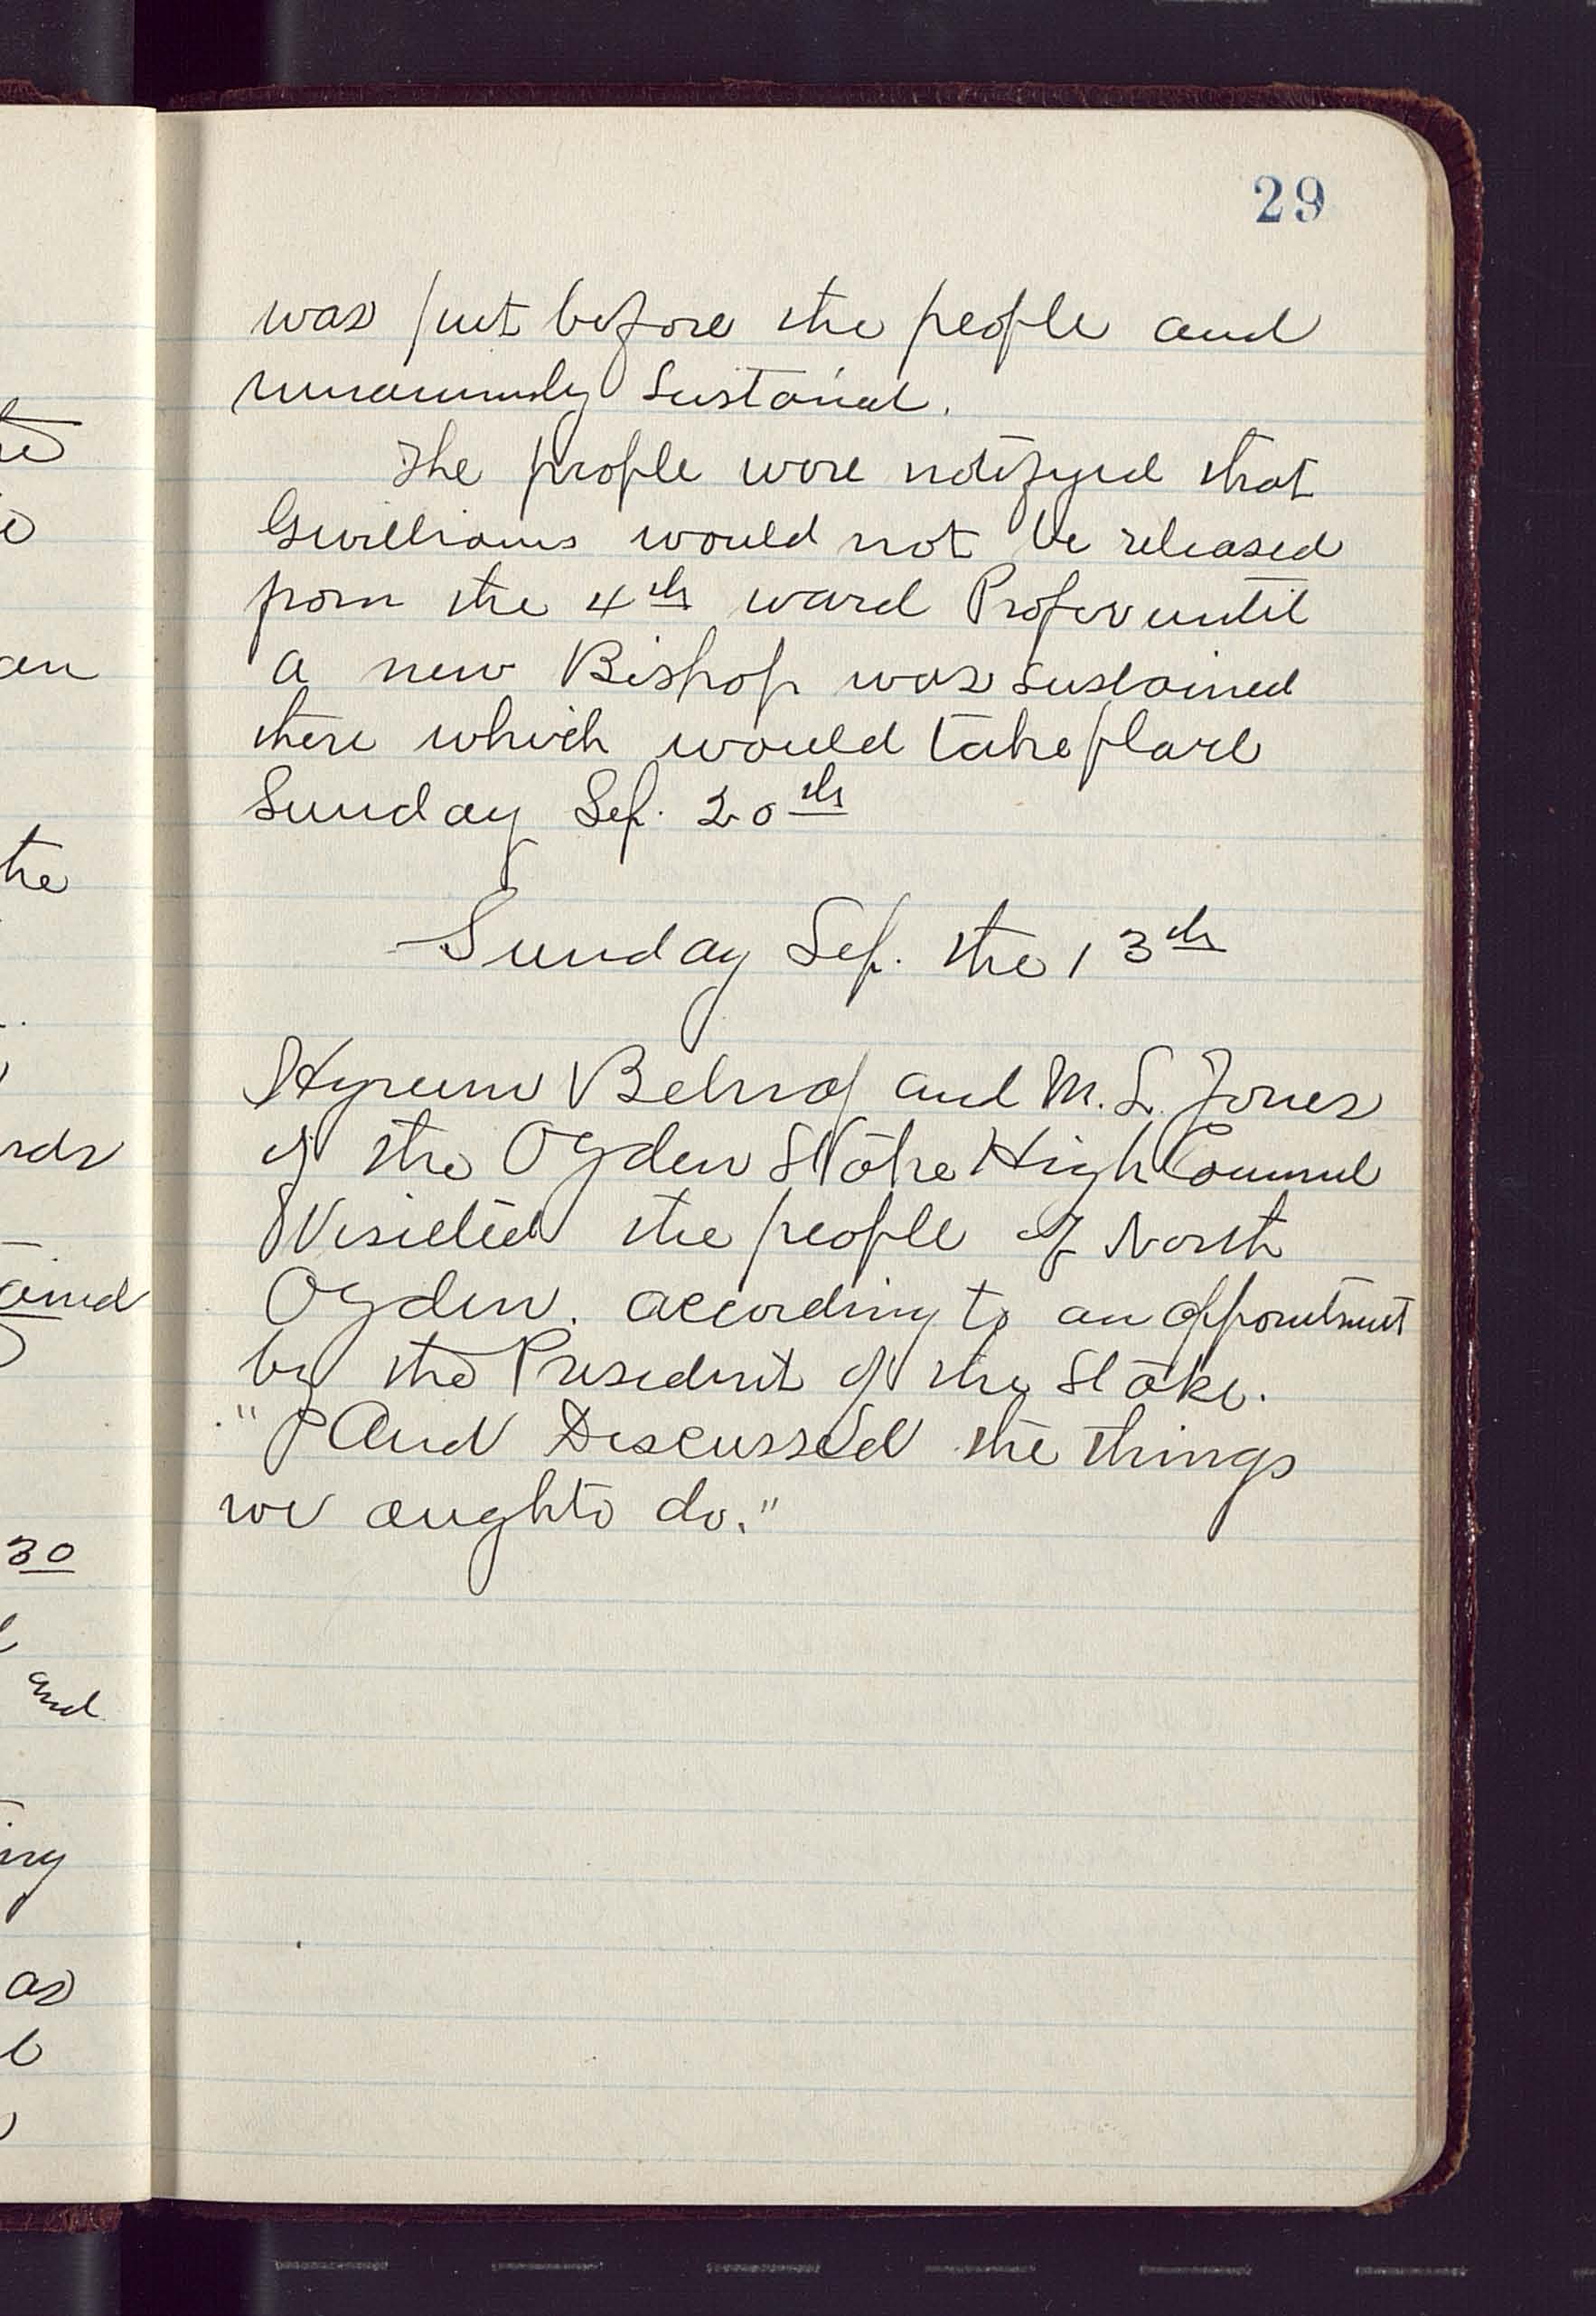 29
was put before the people and
unanimously sustained.
The people were notifyed that
Gwilliams would not be released
from the 4th ward Proper until
a new Bishop was sustained
there which would take place
Sunday Sep. 20th
Sunday Sep. the 13th
Hyrum Belnap and M. L. Jones
of the Ogden Stake High Council
Visieted the people of North
Ogden. according to an appointment
by the President of the Stake.
"And Discussed the things
we oughto do."
the
an
the
30
and
as